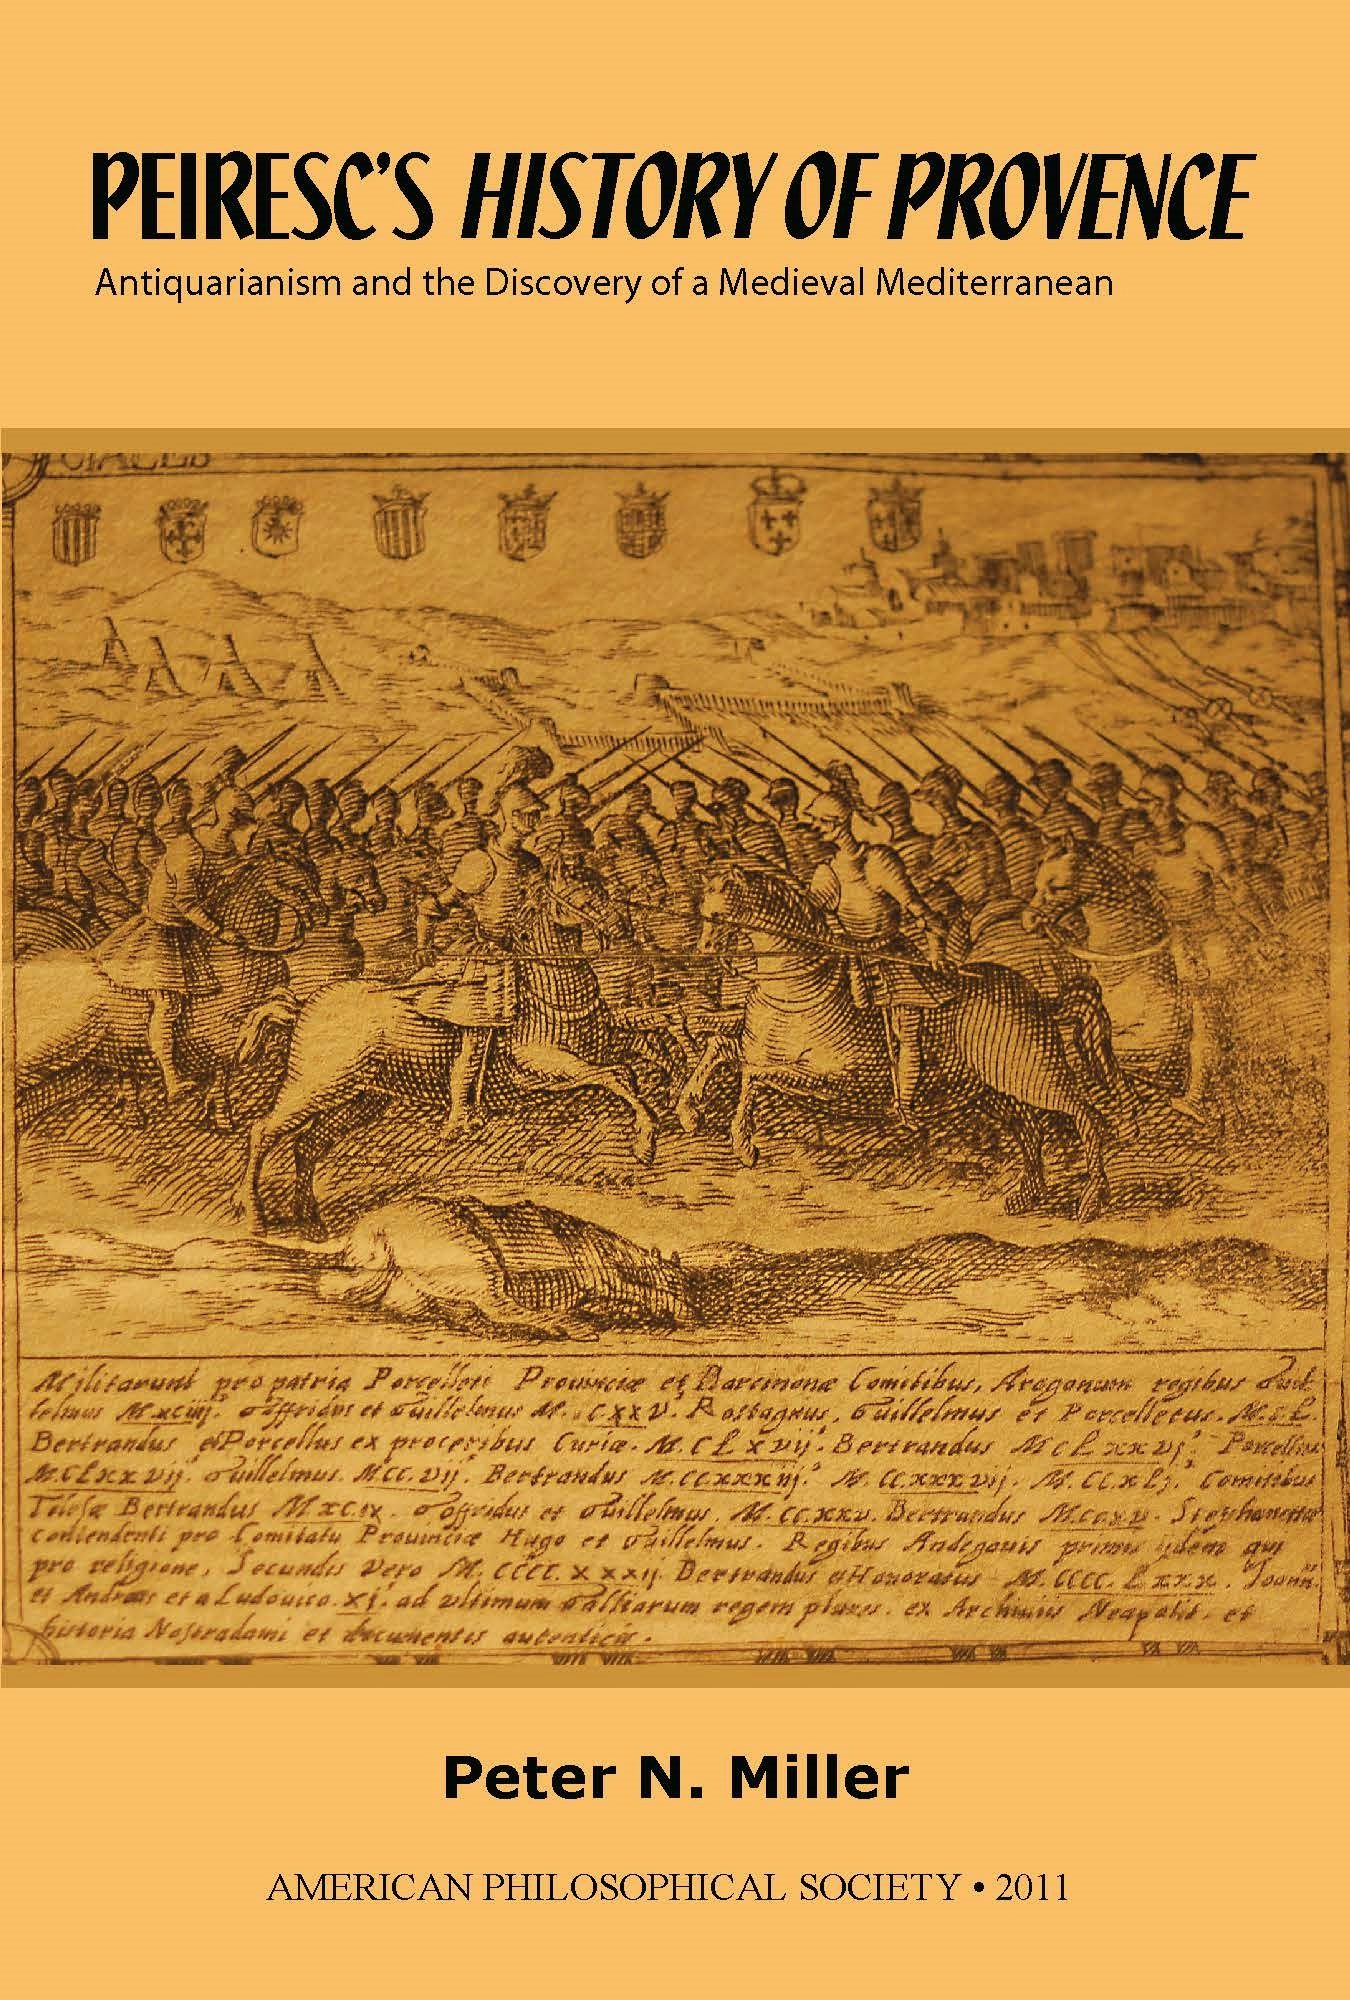 PEIRESC'S HISTORY OF PROVENCE
Antiquarianism and the Discovery of a Medieval Mediterranean
Militarunt pro patria Porcelleti Provinciæ et Barcinonæ Comitibus, Aragonum regibus
M.xciiij. Goffridus et Guillelmus M. CXXV. Rostagnus, Guillelmus et Porcelletus.
Bertrandus et Porcellus ex proceribus Curiæ. M.CLXVij. Bertrandus MCLXXVj.
M.CLXXVij. Guillelmus. MCC.Vij. Bertrandus M.CCXXXiij. M.CC.XXXVij. M.CC.XLj. Comitibus
Bertrandus MXCIX. Goffridus et Guillelmus. M.CC.XXV. Bertrandus
contendenti pro Comitatu Provinciæ Hugo et Guillelmus. Regibus Andegavis primis ijdem qui
pro religione, Secundis vero M.CCCC.XXXij. Bertrandus et Honoratus M.CCCC.LXXX.
et Andreas et a Ludovico.XI. ad ultimum Galliarum regem plures. ex Archiviis Neapolit. et
historia Nostradami et documentis autenticis.
Peter N. Miller
AMERICAN PHILOSOPHICAL SOCIETY • 2011